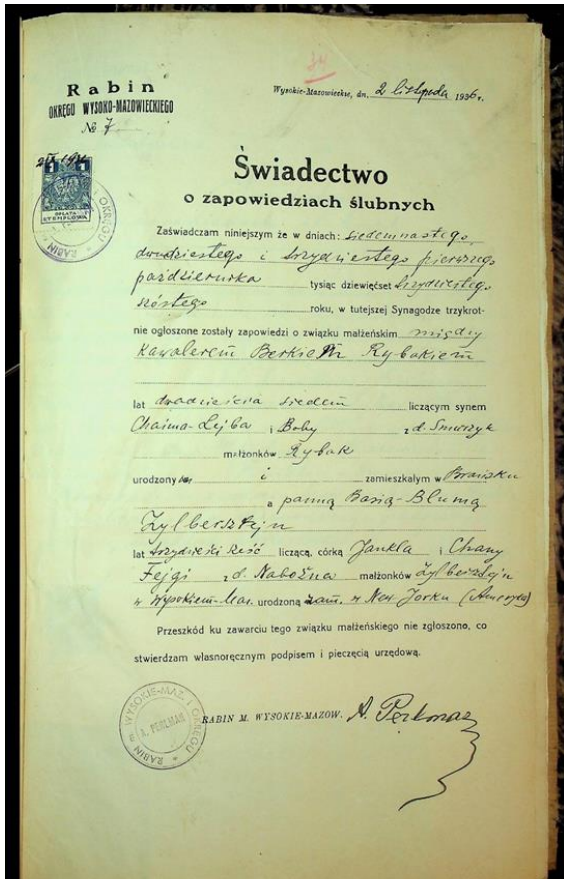 74
Rabin
OKRĘGU WYSOKO-MAZOWIECKIEGO
№ 7
Wysokie-Mazowieckie, dn. 2 listopada 1936 r.
1 1
OPŁATA
STEMPLOWA
RABIN I OKRĘGU
Świadectwo
o zapowiedziach ślubnych
Zaświadczam niniejszym że w dniach: siedemnastego,
dwudziestego i trzydziestego pierwszego
października tysiąc dziewięćset trzydziestego
szóstego roku, w tutejszej Synagodze trzykrot-
nie ogłoszone zostały zapowiedzi o związku małżeńskim między
Kawalerem Berkiem Rybakiem
lat dwadzieścia siedem liczącym synem
Chaima-Lejba i Boby z d. Smurzyk
małżonków Rybak
urodzonym i zamieszkałym w Brańsku
a panną Basią-Blumą
Zylbersztejn
lat trzydzieści sześć liczącą, córką Jankla i Chany
Fejgi z d. Nabożna małżonków Zylbersztejn
w Wysokiem-Maz. urodzoną zam. w New Jorku (Ameryka)
Przeszkód ku zawarciu tego związku małżeńskiego nie zgłoszono, co
stwierdzam własnoręcznym podpisem i pieczęcią urzędową.
RABIN m. WYSOKIE-MAZ. I OKRĘGU
A. PERLMAN
RABIN M. WYSOKIE-MAZOW. A. Perlman